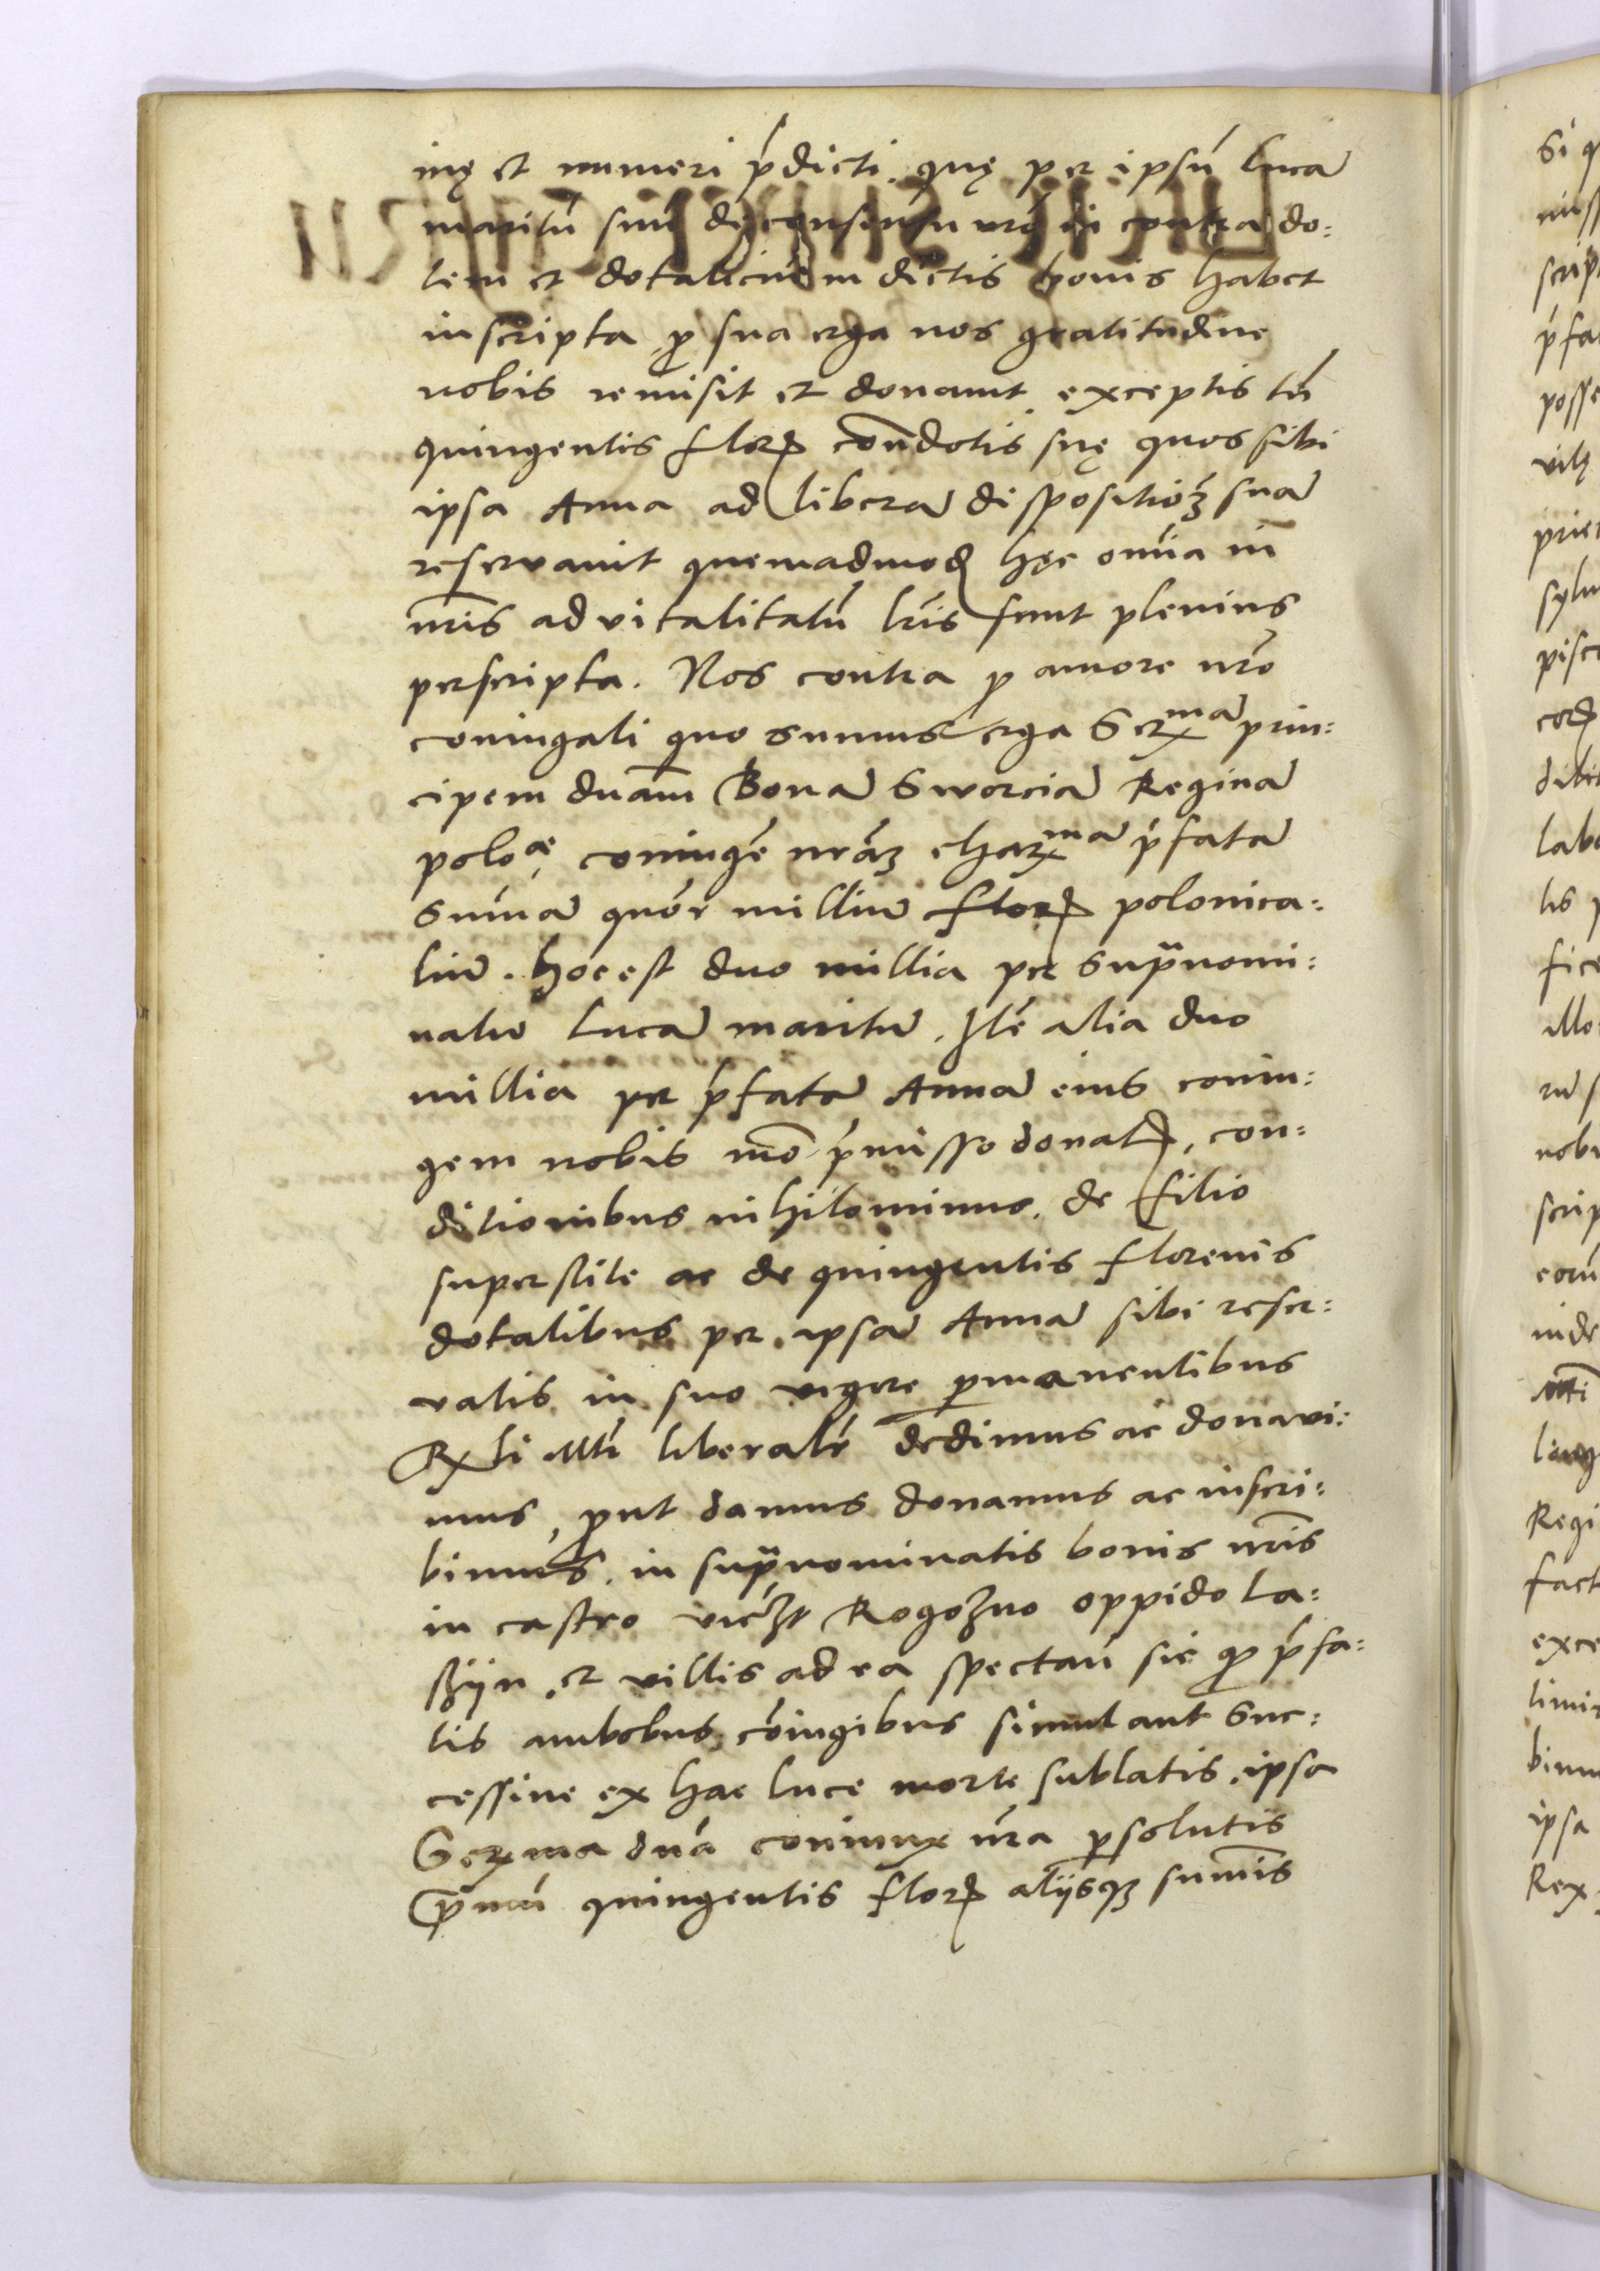 inę et numeri p̄dicti. quę per ipsū Luca͂
maritū suū de consensu nr̄o in contra do:
tem et dotaliciū in dictis bonis habet
inscripta, ꝓ sua erga nos gratitudine
nobis remisit et donavit exceptis tn̄
quingentis florꝭ con̄dotis suę quos sibi
ipsa Anna ad libera͂ dispositioēꝫ sua͂
reservavit quemadmodꝭ hęc om̄ia in
nr̄is advitalitatū lr̄is sunt plenius
perscripta. Nos contra ꝓ amore nr̄o
coniugali quo sumus erga Serx^ma͂ prin:
cipem dn̄am Bona͂ Sworcia͂ Regina͂
polo^æ, coniugē nr̄aꝫ charx^ma͂ p̄fata͂
Sum̄a͂ quōr milliu͂ florꝭ polonica:
liu͂. hoc est duo millia per Supᷓnomi:
natu͂ Luca͂ maritu͂. Itē alia duo
millia per p̄fata͂ Anna͂ eius coniu:
gem nobis mō p̄misso donatꝭ, con:
ditionibus nihilominus. de filio
superstite ac de quingentis florenis
dotalibus per ipsa͂ Anna͂ sibi reser:
vatis in suo vigore ꝑmanentibus
Rx̄li Mt̄i liberalr̄ dedimus ac donavi:
mus, ꝓut damus donamus ac inscri:
bimus. in supᷓnominatis bonis nr̄is
in castro vicꝫt Rogoʒno oppido La:
sʒijn, et villis ad ea spectan̄ sic qꝫ p̄fa:
tis ambobus cōiugibus simul aut Suc:
cessive ex hac luce morte sublatis. ipsa
Serxma dn̄a coniunx nr̄a ꝑsolutis
Pᷓmū quingentis florꝭ alijsqꝫ sum̄is